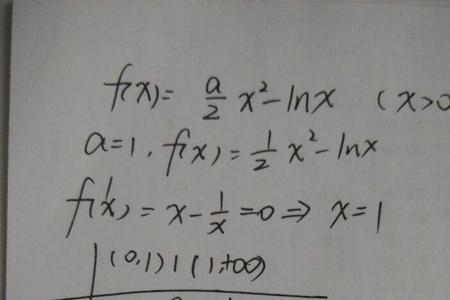 f(x) = a/2 x² - lnx (x>0
a=1, f(x) = 1/2 x² - lnx
f'(x) = x - 1/x = 0 ⇒ x=1
| (0,1) | (1,+∞)